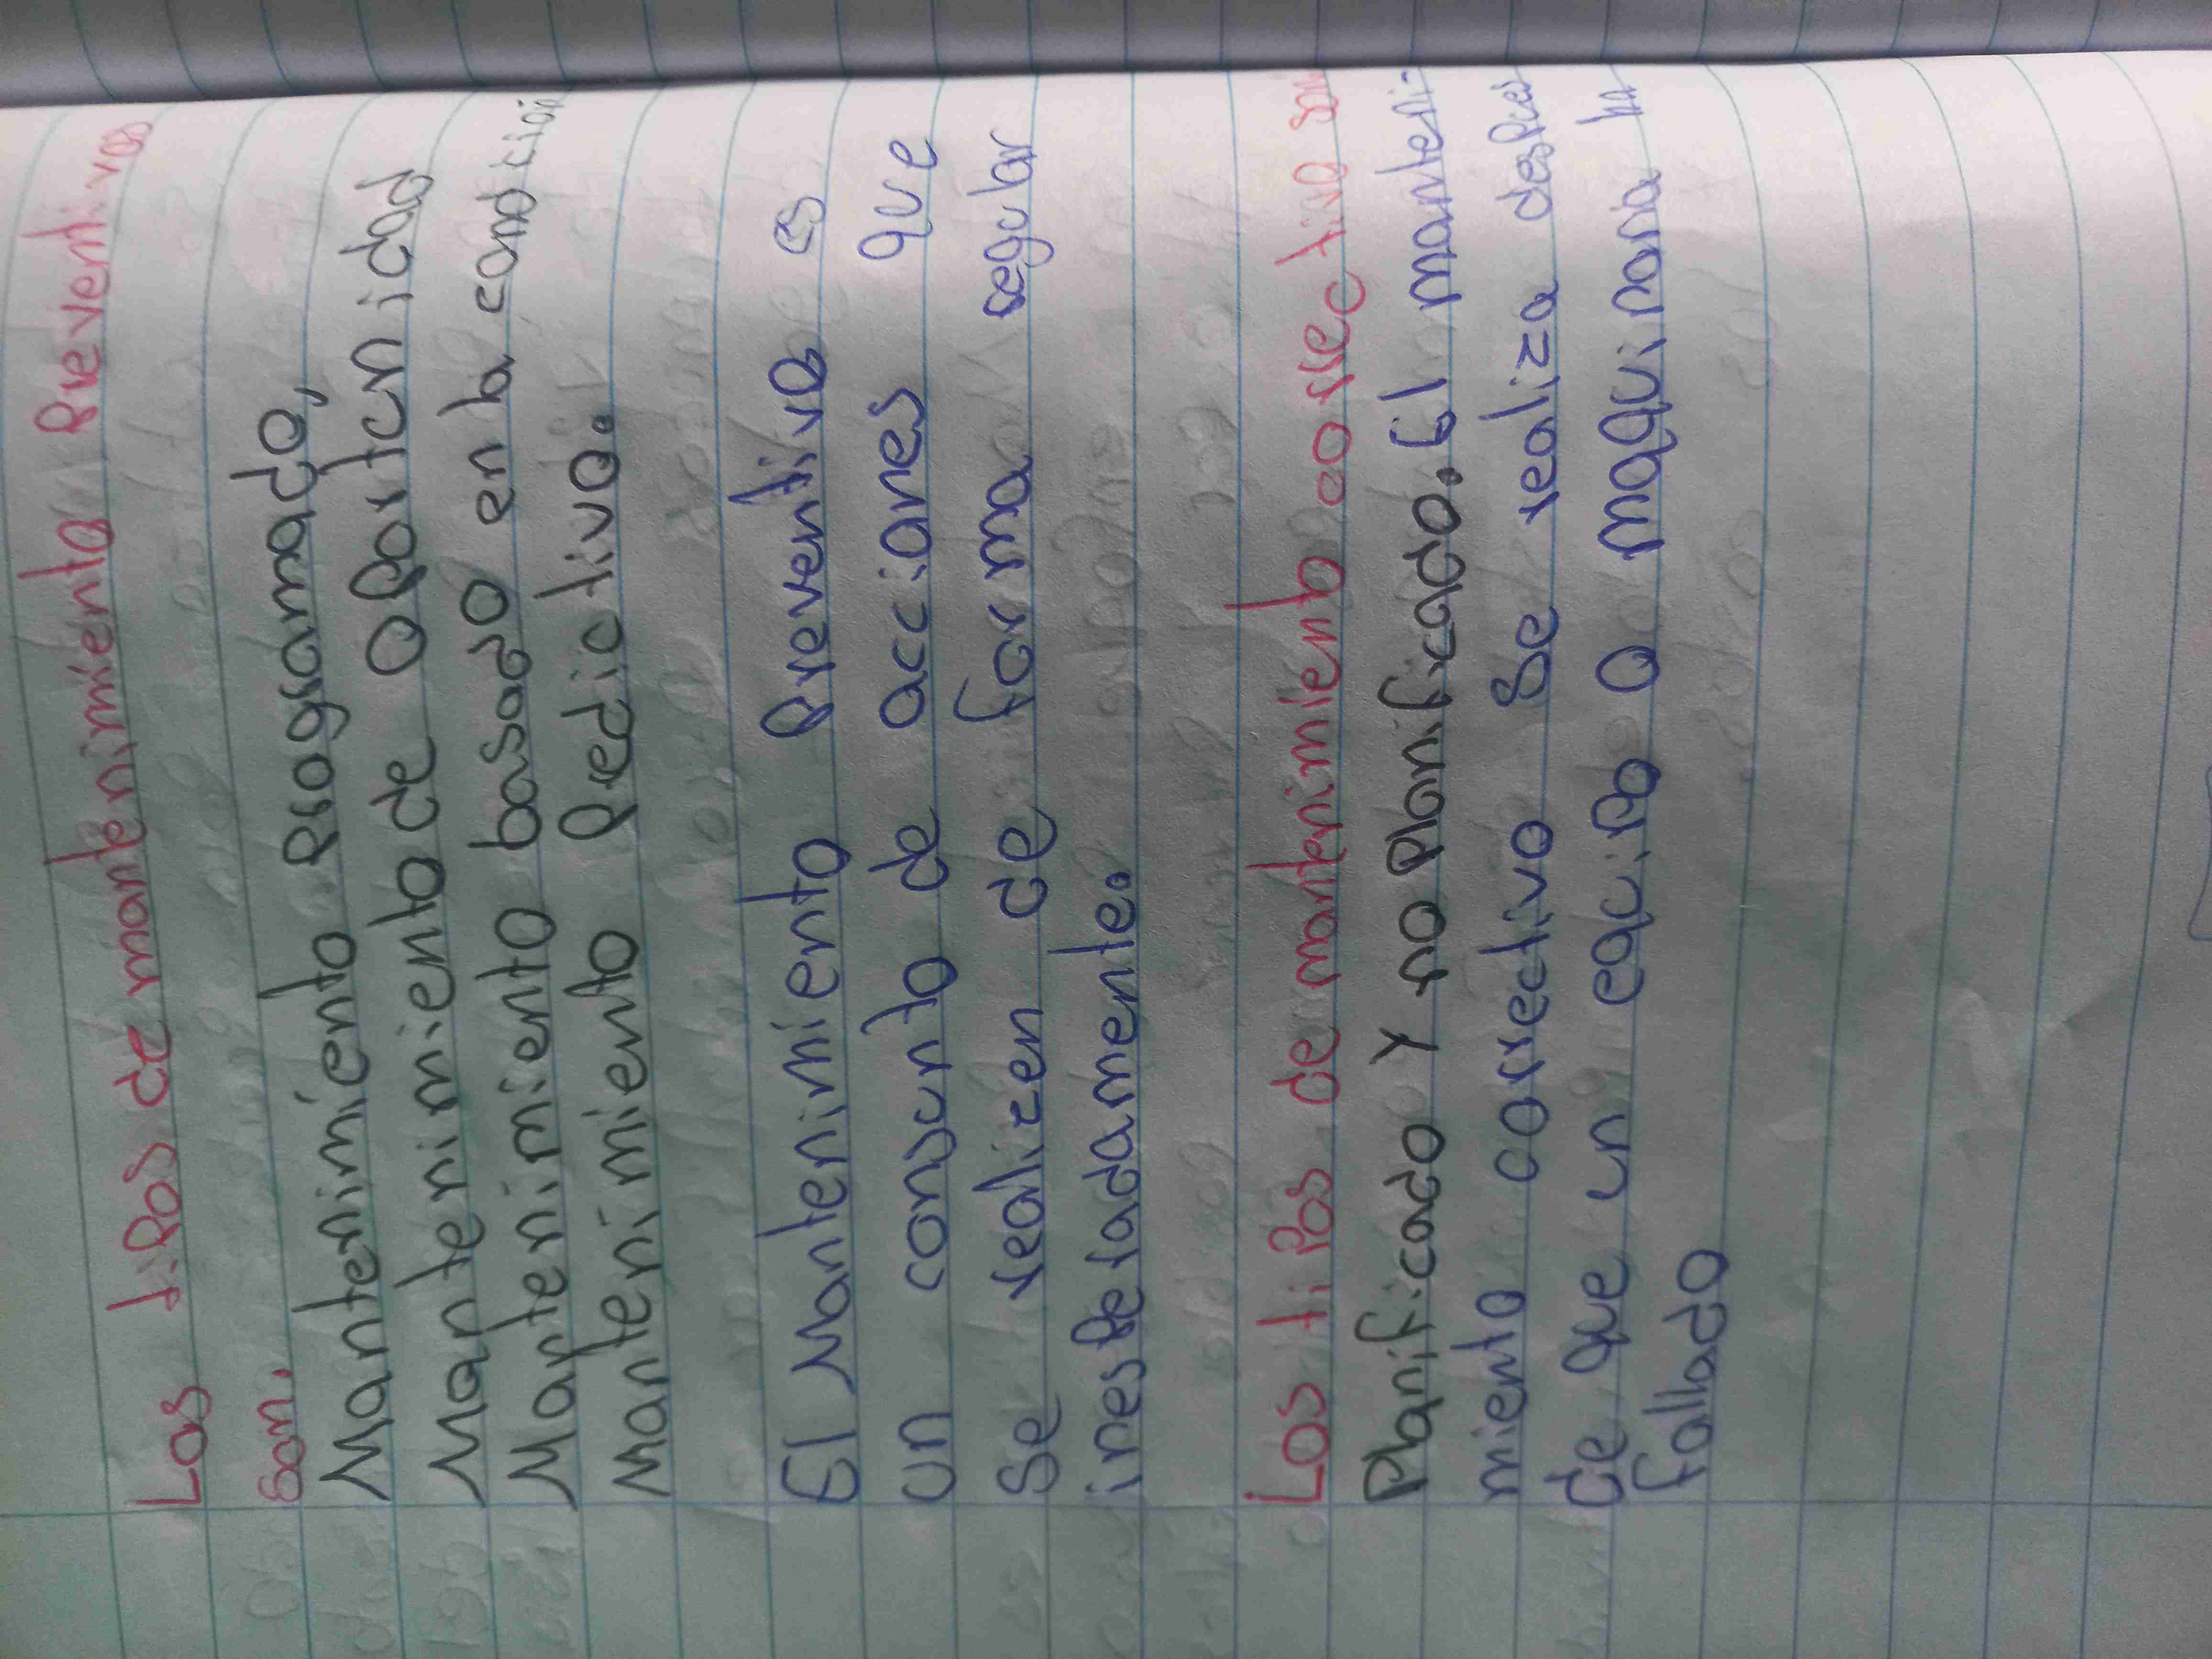 Los tipos de mantenimiento Preventivos
son.
Mantenimiento Programado,
Mantenimiento de Oportunidad
Mantenimiento basado en la condición
Mantenimiento Predictivo.
El Mantenimiento Preventivo es
un consunto de acciones que
Se realizen de forma segular
inespetadamente.
Los tipos de mantenimiento correctivo son
Planificado Y no Planificado. El manteni-
miento correctivo Se realiza despues
de que un equipo o maquinaria ha
fallado